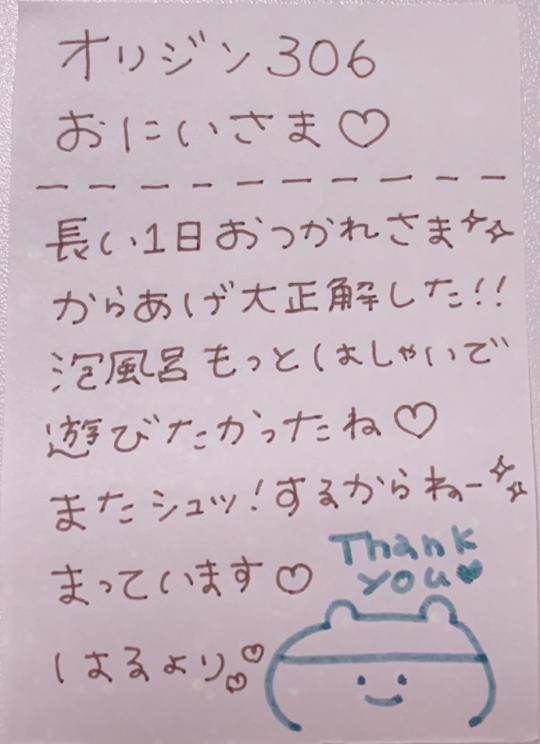 オリジン306
おにいさま♡
長い1日おつかれさま✨
からあげ大正解した!!
泡風呂もっとはしゃいで
遊びたかったね♡
またシュッ!するからねー✨
まっています♡
Thank
you♥
はるより♡♡